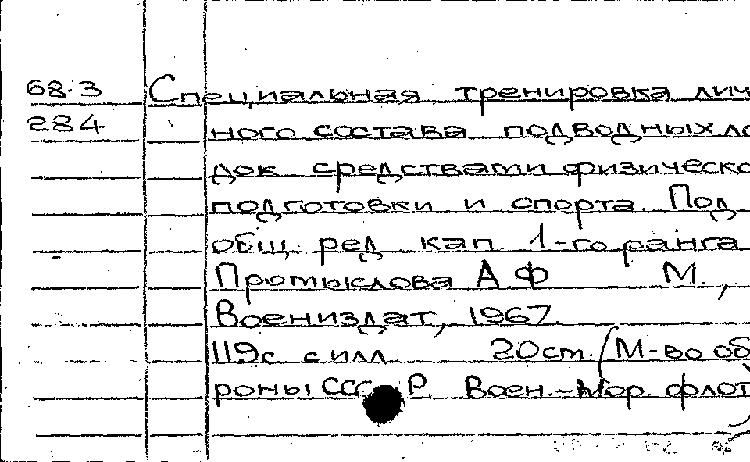 68.3 Специальная тренировка лич
284 ного состава подводных ло
док средствами физическо
подготовки и спорта. Под
общ. ред. кап. 1-го ранга
Протыслова А.Ф. М.,
Воениздат, 1967.
119с. с илл. 20см. (М-во об
роны СССР. Воен.-Мор. флот